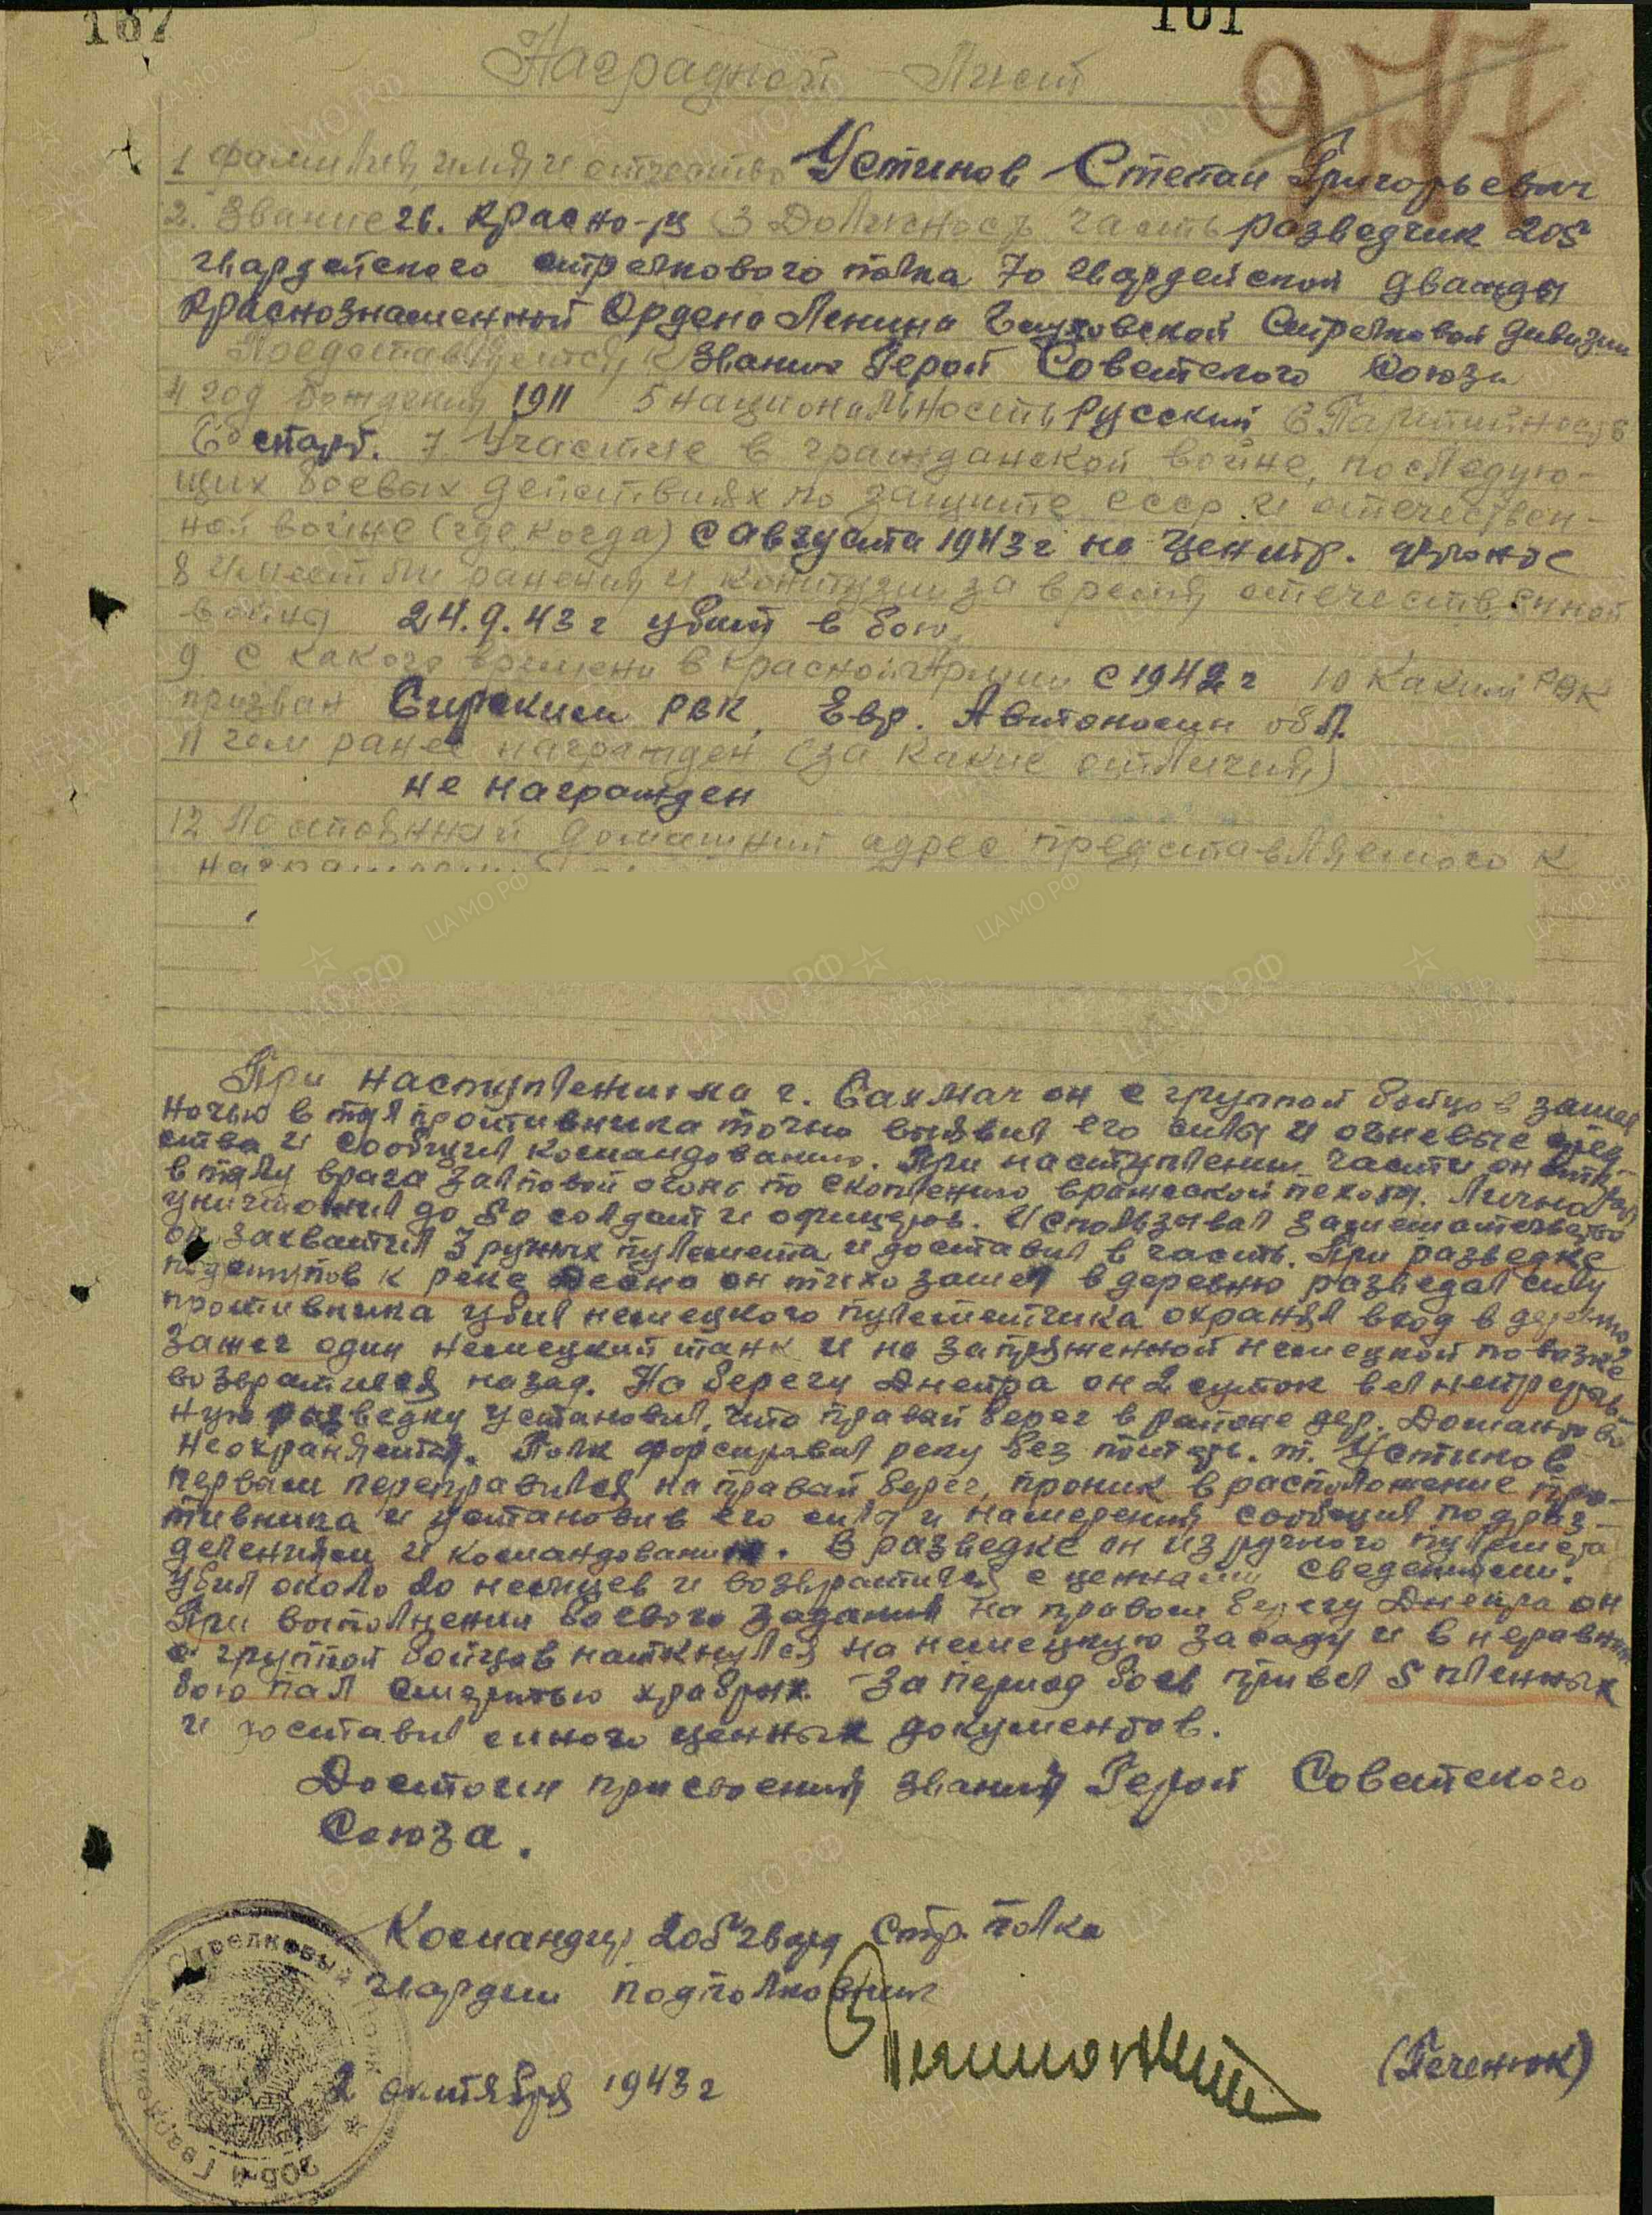 167
101
977
Наградной Лист
1 фамилия, имя и отчество Устинов Степан Григорьевич
2. Звание гв. красно-ц 3 Должность часть разведчик 205
гвардейского стрелкового полка 70 гвардейской дважды
Краснознаменной Ордена Ленина Глуховской Стрелковой дивизии
Представляется к званию Герой Советского Союза
4 год рождения 1911 5 национальность Русский 6 Партийность
б/парт. 7 Участие в гражданской войне, последую-
щих боевых действиях по защите ссср и отечествен-
ной войне (где когда) с августа 1943 г на центр. фронте
8 Имеет ли ранения и контузии за время отечественной
войны 24.9.43 г убит в бою
9 С какого времени в красной Армии с 1942 г 10 Каким РВК
призван Бирским РВК, Евр. Автономн обл.
11 чем ранее награжден (за какие отличия)
не награжден
12 Постоянный домашний адрес представляемого к
При наступлении на г. Бахмач он с группой бойцов зашел
ночью в тыл противника точно выявил его силы и огневые сред-
ства и сообщил командованию. При наступлении части он
в тылу врага залповой огонь по скоплению вражеской пехоты. Лично
уничтожил до 80 солдат и офицеров. Использывал замешательство
он захватил 3 ручных пулемета и доставил в часть. При разведке
подступов к реке Десна он тихо зашел в деревню разведал силу
противника убил немецкого пулеметчика охраняя вход в деревню
зажег один немецкий танк и на запряженной немецкой повозке
возвратился назад. На берегу Днепра он 2 суток вел непрерыв-
ную разведку установил, что правый берег в районе дер. Домантово
неохраняется. Полк форсировал реку без потерь. т. Устинов
первым переправился на правый берег, проник в расположение про-
тивника и установив его силы и намерения сообщил подраз-
делениям и командованию. В разведке он из ручного пулемета
убил около 20 немцев и возвратился с ценными сведениями.
При выполнении боевого задания на правом берегу Днепра он
с группой бойцов наткнулся на немецкую засаду и в неравном
бою пал смертью храбрых. За период боев привел 5 пленных
и доставил много ценных документов.
Достоин присвоения звания Герой Советского
Союза.
Командир 205 гвард Стр. полка
гвардии подполковник
(Печенюк)
2 октября 1943 г
205-й Гвардейский Стрелковый Полк
ЦА МО РФ